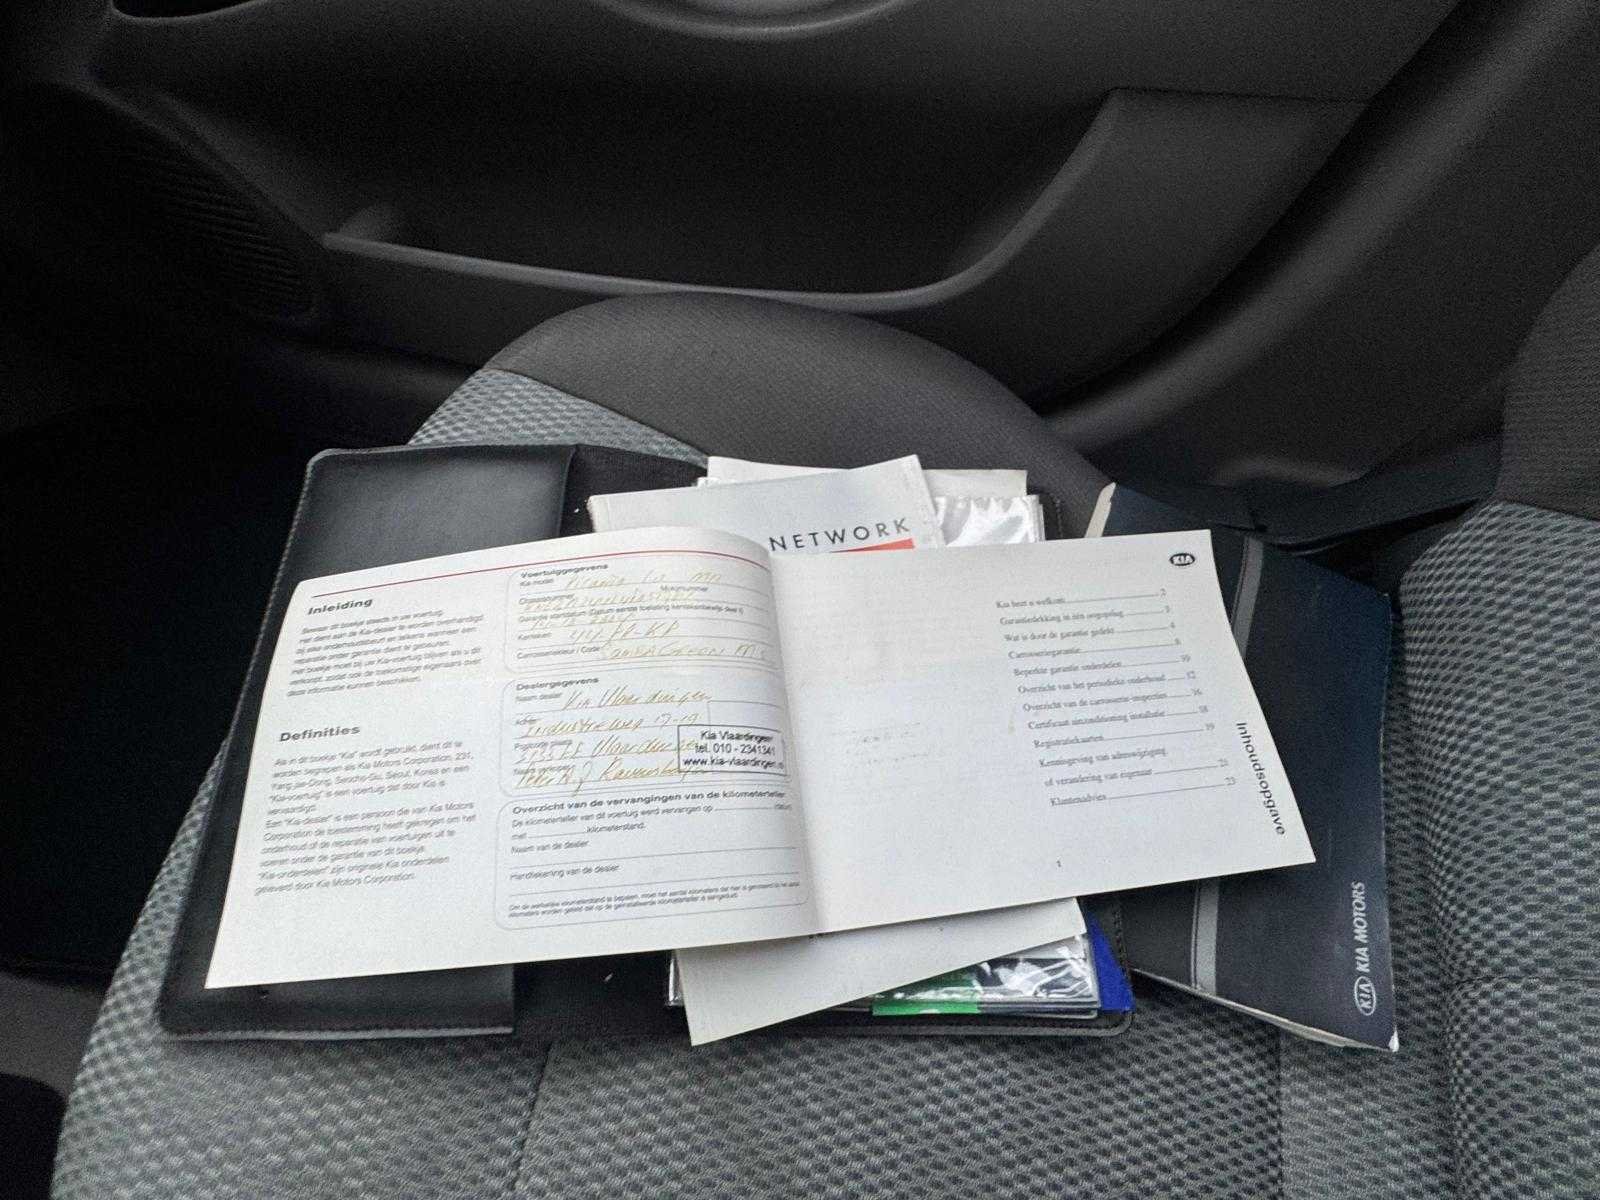 NETWORK
Inleiding
Bewaar dit boekje steeds in uw voertuig.
Het dient aan de Kia-dealer te worden overhandigd
bij elke onderhoudsbeurt en telkens wanneer een
reparatie onder garantie dient te gebeuren.
Het boekje moet bij uw Kia-voertuig blijven als u dit
verkoopt, zodat ook de toekomstige eigenaars over
deze informatie kunnen beschikken.
Definities
Als in dit boekje "Kia" wordt gebruikt, dient dit te
worden begrepen als Kia Motors Corporation, 231,
Yang jae-Dong, Seocho-Gu, Seoul, Korea en een
"Kia-voertuig" is een voertuig dat door Kia is
vervaardigd.
Een "Kia-dealer" is een persoon die van Kia Motors
Corporation de toestemming heeft gekregen om het
onderhoud of de reparatie van voertuigen uit te
voeren onder de garantie van dit boekje.
"Kia-onderdelen" zijn originele Kia onderdelen
geleverd door Kia Motors Corporation.
Voertuiggegevens
Kia model Picanto
Chassisnummer Motornummer
Garantie startdatum (Datum eerste toelating kentekenbewijs deel I)
Kenteken 44-PP-KP
Carrosseriekleur / Code
Dealergegevens
Naam dealer Kia Vlaardingen
Adres Industrieweg 17-19
Postcode Vlaardingen
Kia Vlaardingen
tel. 010 - 2341341
www.kia-vlaardingen.
Overzicht van de vervangingen van de kilometerteller
De kilometerteller van dit voertuig werd vervangen op
met kilometerstand.
Naam van de dealer
Handtekening van de dealer
KIA
Kia heet u welkom 2
Garantiedekking in één oogopslag 3
Wat is door de garantie gedekt 4
Carrosseriegarantie 8
Beperkte garantie onderdelen 10
Overzicht van het periodieke onderhoud 12
Overzicht van de carrosserie-inspecties 16
Certificaat airconditioning installatie 18
Registratiekaarten 19
Kennisgeving van adreswijziging
of verandering van eigenaar 21
Klantenadvies 23
1
Inhoudsopgave
KIA KIA MOTORS